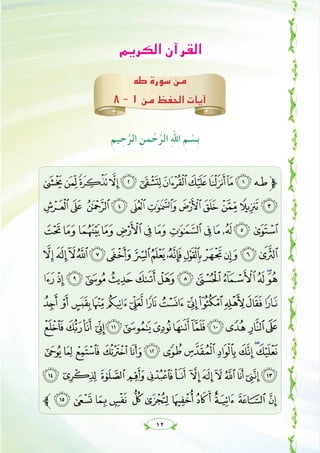 القرآن الكريم
من سورة طه
آيات الحفظ من ١ - ٨
بِسْمِ اللَّهِ الرَّحْمَنِ الرَّحِيمِ
﴿ طه ١ مَا أَنزَلْنَا عَلَيْكَ الْقُرْءَانَ لِتَشْقَىٰ ٢ إِلَّا تَذْكِرَةً لِّمَن يَخْشَىٰ
٣ تَنزِيلًا مِّمَّنْ خَلَقَ الْأَرْضَ وَالسَّمَٰوَٰتِ الْعُلَى ٤ الرَّحْمَٰنُ عَلَى الْعَرْشِ
اسْتَوَىٰ ٥ لَهُۥ مَا فِي السَّمَٰوَٰتِ وَمَا فِي الْأَرْضِ وَمَا بَيْنَهُمَا وَمَا تَحْتَ
الثَّرَىٰ ٦ وَإِن تَجْهَرْ بِالْقَوْلِ فَإِنَّهُۥ يَعْلَمُ السِّرَّ وَأَخْفَى ٧ اللَّهُ لَا إِلَٰهَ إِلَّا
هُوَ لَهُ الْأَسْمَاءُ الْحُسْنَىٰ ٨ وَهَلْ أَتَىٰكَ حَدِيثُ مُوسَىٰ ٩ إِذْ رَءَا
نَارًا فَقَالَ لِأَهْلِهِ امْكُثُوا إِنِّي ءَانَسْتُ نَارًا لَّعَلِّي ءَاتِيكُم مِّنْهَا بِقَبَسٍ أَوْ أَجِدُ
عَلَى النَّارِ هُدًى ١٠ فَلَمَّا أَتَىٰهَا نُودِيَ يَٰمُوسَىٰ ١١ إِنِّي أَنَا رَبُّكَ فَاخْلَعْ
نَعْلَيْكَ إِنَّكَ بِالْوَادِ الْمُقَدَّسِ طُوًى ١٢ وَأَنَا اخْتَرْتُكَ فَاسْتَمِعْ لِمَا يُوحَىٰ
١٣ إِنَّنِي أَنَا اللَّهُ لَا إِلَٰهَ إِلَّا أَنَا فَاعْبُدْنِي وَأَقِمِ الصَّلَوٰةَ لِذِكْرِي ١٤
إِنَّ السَّاعَةَ ءَاتِيَةٌ أَكَادُ أُخْفِيهَا لِتُجْزَىٰ كُلُّ نَفْسٍ بِمَا تَسْعَىٰ ١٥ ﴾
١٢